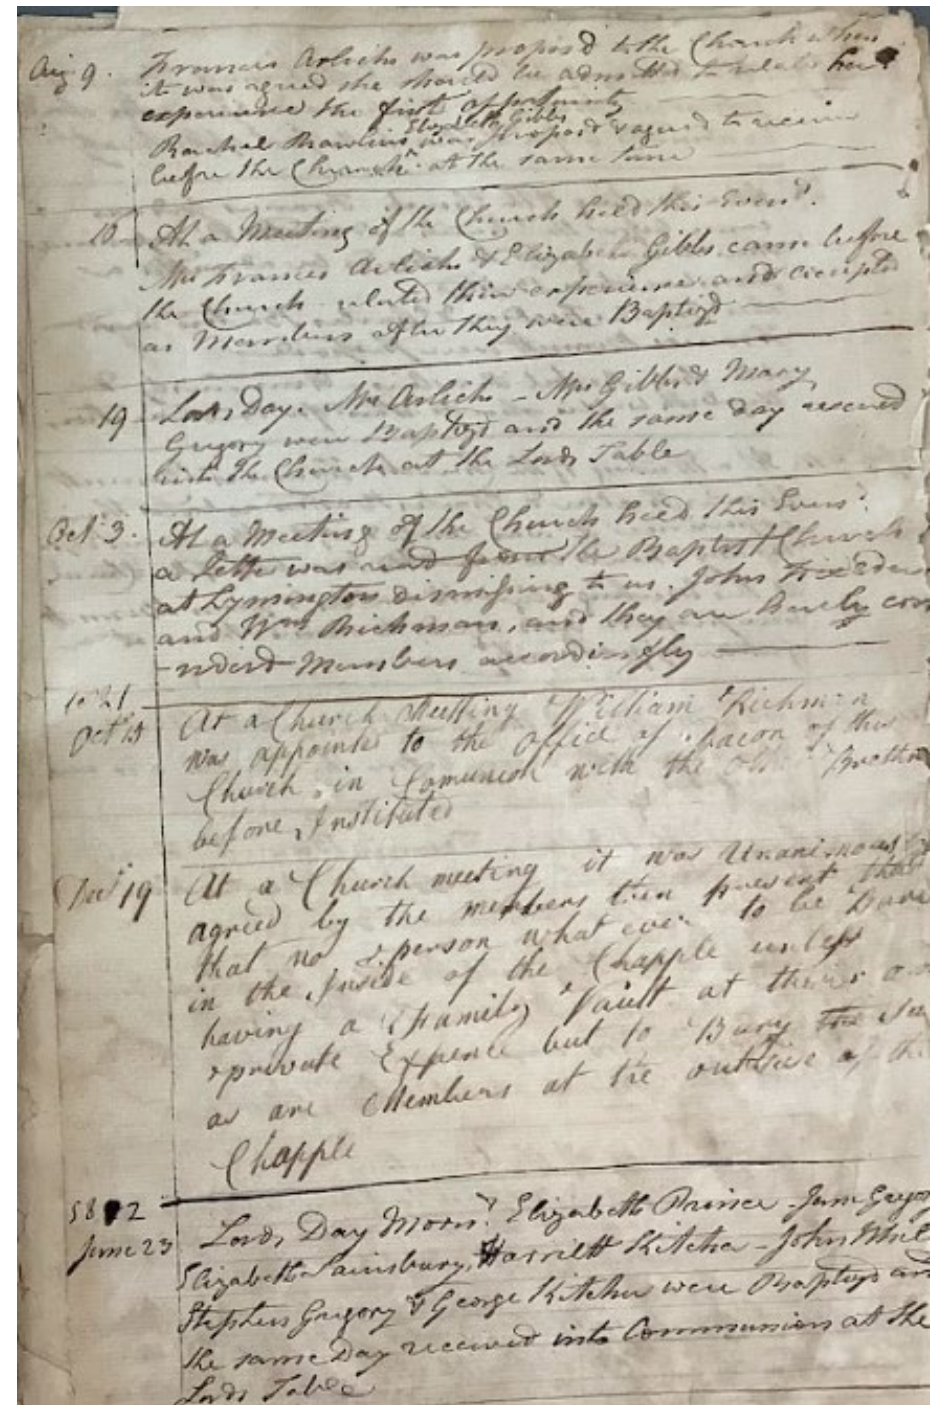 Aug 9. Frances Arlichs was propos'd to the Church when
it was agreed she should be admitted to relate her
experience the first oppertunity
Elizabeth Gibbs
Rachel Rawlins was propos'd & agreed to receive
before the Church at the same time
10 At a Meeting of the Church held this Even.
Mrs Frances Arlichs & Elizabeth Gibbs came before
the Church related their experience and accepted
as Members after they were Baptizd
19 Lords Day. Mrs Arlichs - Mrs Gibbs & Mary
Gregory were Baptizd and the same day received
into the Church at the Lords Table
Oct 3. At a Meeting of the Church held this Even.
a Letter was read from the Baptist Church
at Lymington dismissing to us. John
and Wm Richman, and they are hereby con
-siderd Members accordingly
Oct At a Church Meetting William Richman
was appointed to the office of Deacon of this
Church in Comunion with the Other Brethren
before Instituted
19 At a Church meeting it was Unanimously
agreed by the members then present that
that no person what ever to be
in the Inside of the Chapple unless
having a Family Vault at theier
private Expence but to Bury
as are Members at the outside of the
Chapple
June 23 Lords Day Morn. Elizabeth Prince - Jane
Elizabeth Sainsbury, Harriett Kitcher - John
Stephen Gregory & George Kitcher were Baptizd and
the same Day received into Communion at the
Lords Table